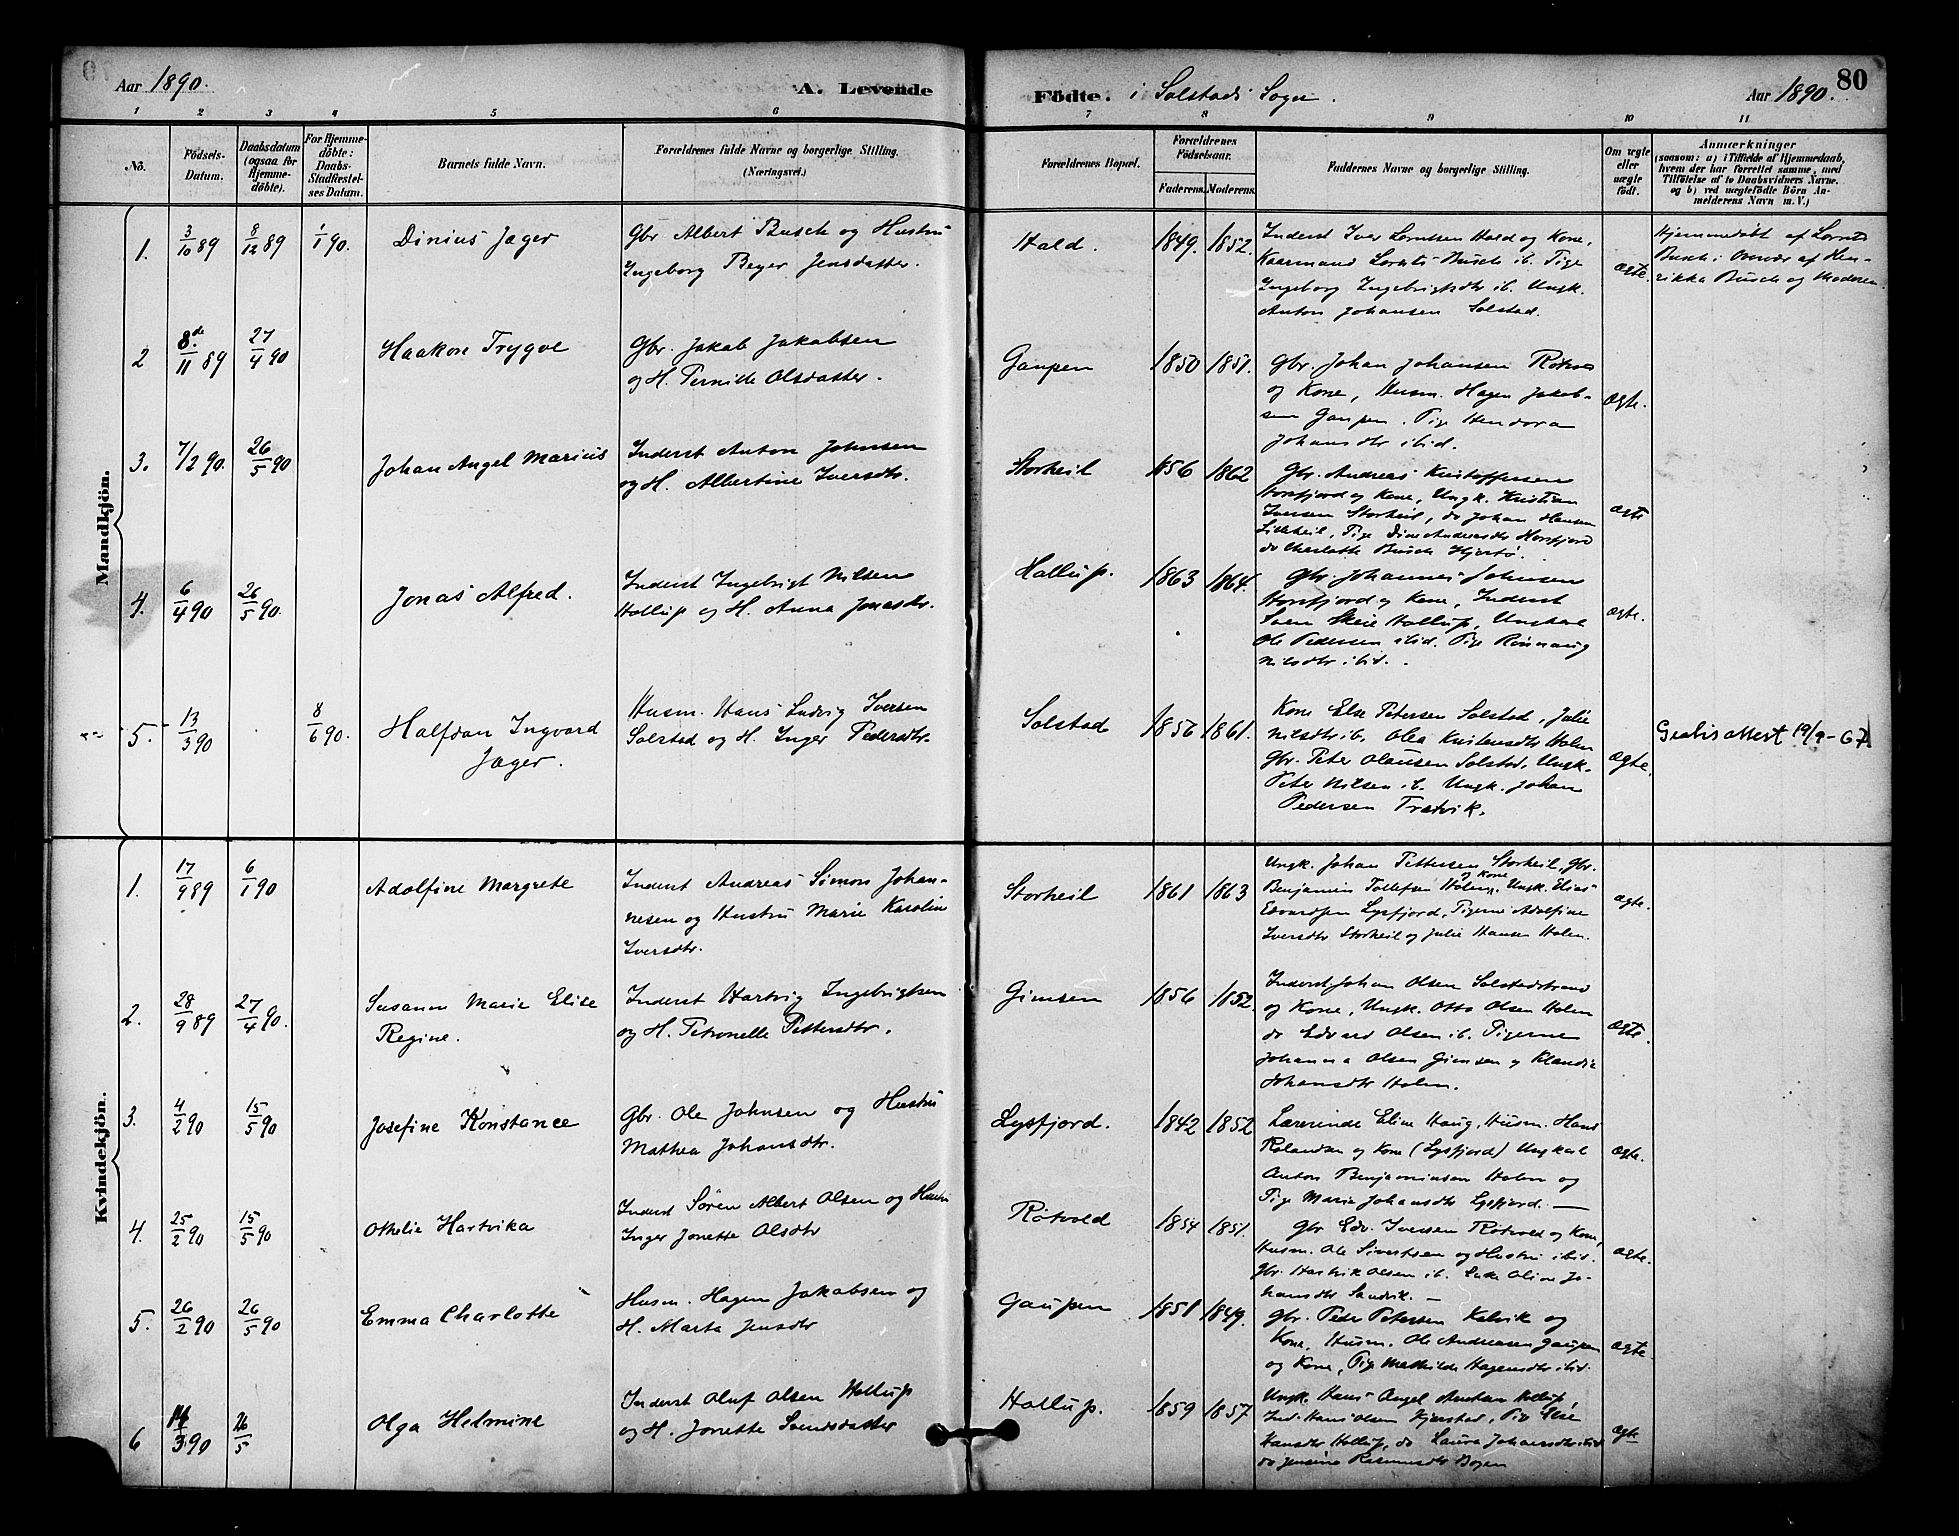 Aar 1890.
A. Levende
Fødte. i Solstads Sogn.
Aar 1890.
80
1 2 3 4 5 6 7 8 9 10 11
No.
Fødsels-Datum.
Daabsdatum (ogsaa for Hjemme-døbte).
For Hjemme-døbte: Daabs-Stadfæstel-ses Datum.
Barnets fulde Navn.
Forældrenes fulde Navne og borgerlige Stilling. (Næringsvei.)
Forældrenes Bopæl.
Forældrenes Fødselsaar.
Faderens. Moderens.
Faddernes Navne og borgerlige Stilling.
Om ægte eller uægte født.
Anmærkninger
(saasom: a) i Tilfælde af Hjemmedaab, hvem der har forrettet samme, med Tilføielse af to Daabsvidners Navne, og b) ved uægtefødte Børn An-melderens Navn m. V.)
Mandkjön.
1. 3/10 89 8/12 89 1/1 90. Dinius Jager
Gbr Albert Busch og Hustru
Ingeborg Beyer Jensdatter.
Hald. 1849. 1852.
Inderst Iver Lorntsen Hald og Kone,
Kaarmand Lornts Busch ib. Pige
Ingeborg Ingebrigtsdtr ib. Ungk.
Anton Johansen Solstad.
ægte.
Hjemmedøbt af Lornts
Busch i Overvær af Hen-
rikka Busch og Moderen.
2 8de/11 89 27/4 90 Haakon Trygve
Gbr. Jakob Jakobsen
og H. Pernide Olsdatter.
Gaupen 1850 1851.
Gbr. Johan Johansen
og Kone, Husm. Hagen Jakob-
sen Gaupen. Pige Hendora
Johansdtr ibid.
Ægte.
3. 7/2 90. 26/5 90 Johan Angel Marius
Inderst Anton Johnsen
og H. Albertine Iversdtr.
Storheil 1856 1862
Gbr. Andreas Kristoffersen
Horsfjord og Kone, Ungk. Kristian
Iversen Storheil, do Johan Hansen
Lilleheil, Pige Dine Andreasdtr Horsfjord
do Charlotte Busch
ægte
4. 6/4 90 26/5 90. Jonas Alfred.
Inderst Ingebrigt Nilsen
Hollup og H. Anna Jonasdtr.
Hollup. 1863 1864.
Gbr. Johannes Johnsen
Horsfjord og Kone, Inderst
Sven Skeie Hollup, Ungkarl
Ole Pedersen ibid. Pige Rønnaug
Nilsdtr ibid.
ægte.
5. 13/3 90 8/6 90. Halfdan Ingvard
Jager.
Husm. Hans Ludvig Iversen
Solstad og H. Inger Pedersdtr.
Solstad 1856 1861.
Kone Else Petersen Solstad, Julie
Nilsdtr ib. Olea Kristensdtr Holm
Gbr. Peter Olausen Solstad, Ungk.
Peter Nilsen ib. Ungk. Johan
Pedersen Tratvik.
ægte.
Gratis attest 19/9-67
Kvindekjön.
1. 17/9 89 6/1 90 Adolfine Margrete
Inderst Andreas Simon Johan-
nesen og Hustru Marie Karolin
Iversdtr.
Storheil 1861 1863
Ungk. Johan Pettersen Storheil, Gbr.
Benjamin Tollefsen Holm og Kone, Ungk. Elias
Edvardsen Lysfjord, Pigerne Adolfine
Iversdtr Storheil og Julie Hansen Holm.
ægte.
2. 28/9 89 27/4 90. Susanna Marie Elise
Regine.
Inderst Hartvig Ingebrigtsen
og H. Petronelle Pettersdtr.
Gimsen 1856 1852.
Inderst Johan Olsen Solstadstrand
og Kone, Ungk. Otto Olsen Holm
do Edvard Olsen ib. Pigerne
Johanna Olsen Gimsen og Klaudia
Johansdtr Holm.
ægte
3. 4/2 90 15/5 90 Josefine Konstance
Gbr. Ole Johnsen og Hustru
Mathea Johansdtr.
Lysfjord. 1842 1852
Lærerinde Eline Haug, Husm. Hans
Rolandsen og Kone (Lysfjord) Ungkarl
Anton Benjaminsen Holm og
Pige Marie Johansdtr Lysfjord. —
ægte.
4. 25/2 90 15/5 90 Othelie Hartvika
Inderst Søren Albert Olsen og Hustru
Inger Jonette Olsdtr
Røtvold 1854 1851.
Gbr Edv. Iversen Røtvold og Kone,
Husm. Ole Sivertsen og Hustru ibid.
Gbr. Hartvik Olsen ib. Enke Oline Jo-
hansdtr Sandvik. —
ægte.
5. 26/2 90 26/5 90 Emma Charlotte
Husm. Hagen Jakobsen og
H. Marta Jensdtr
Gaupen 1851 1849.
Gbr. Peder Petersen Kalvik og
Kone, Husm. Ole Andreasen Gaupen
og Kone, Pige Mathilde Hagensdtr ibid.
ægte.
6 14/3 90 26/5 Olga Helmine
Inderst Oluf Olsen Hollup
og H. Jonette Svendsdatter
Hollup. 1859 1857
Ungk. Hans Angel Hollup,
Ind. Hans Olsen Pige Else
Hansdtr Hollup, do Laura Johansdtr ibid
do Jensine Rasmusdtr Bogen
ægte